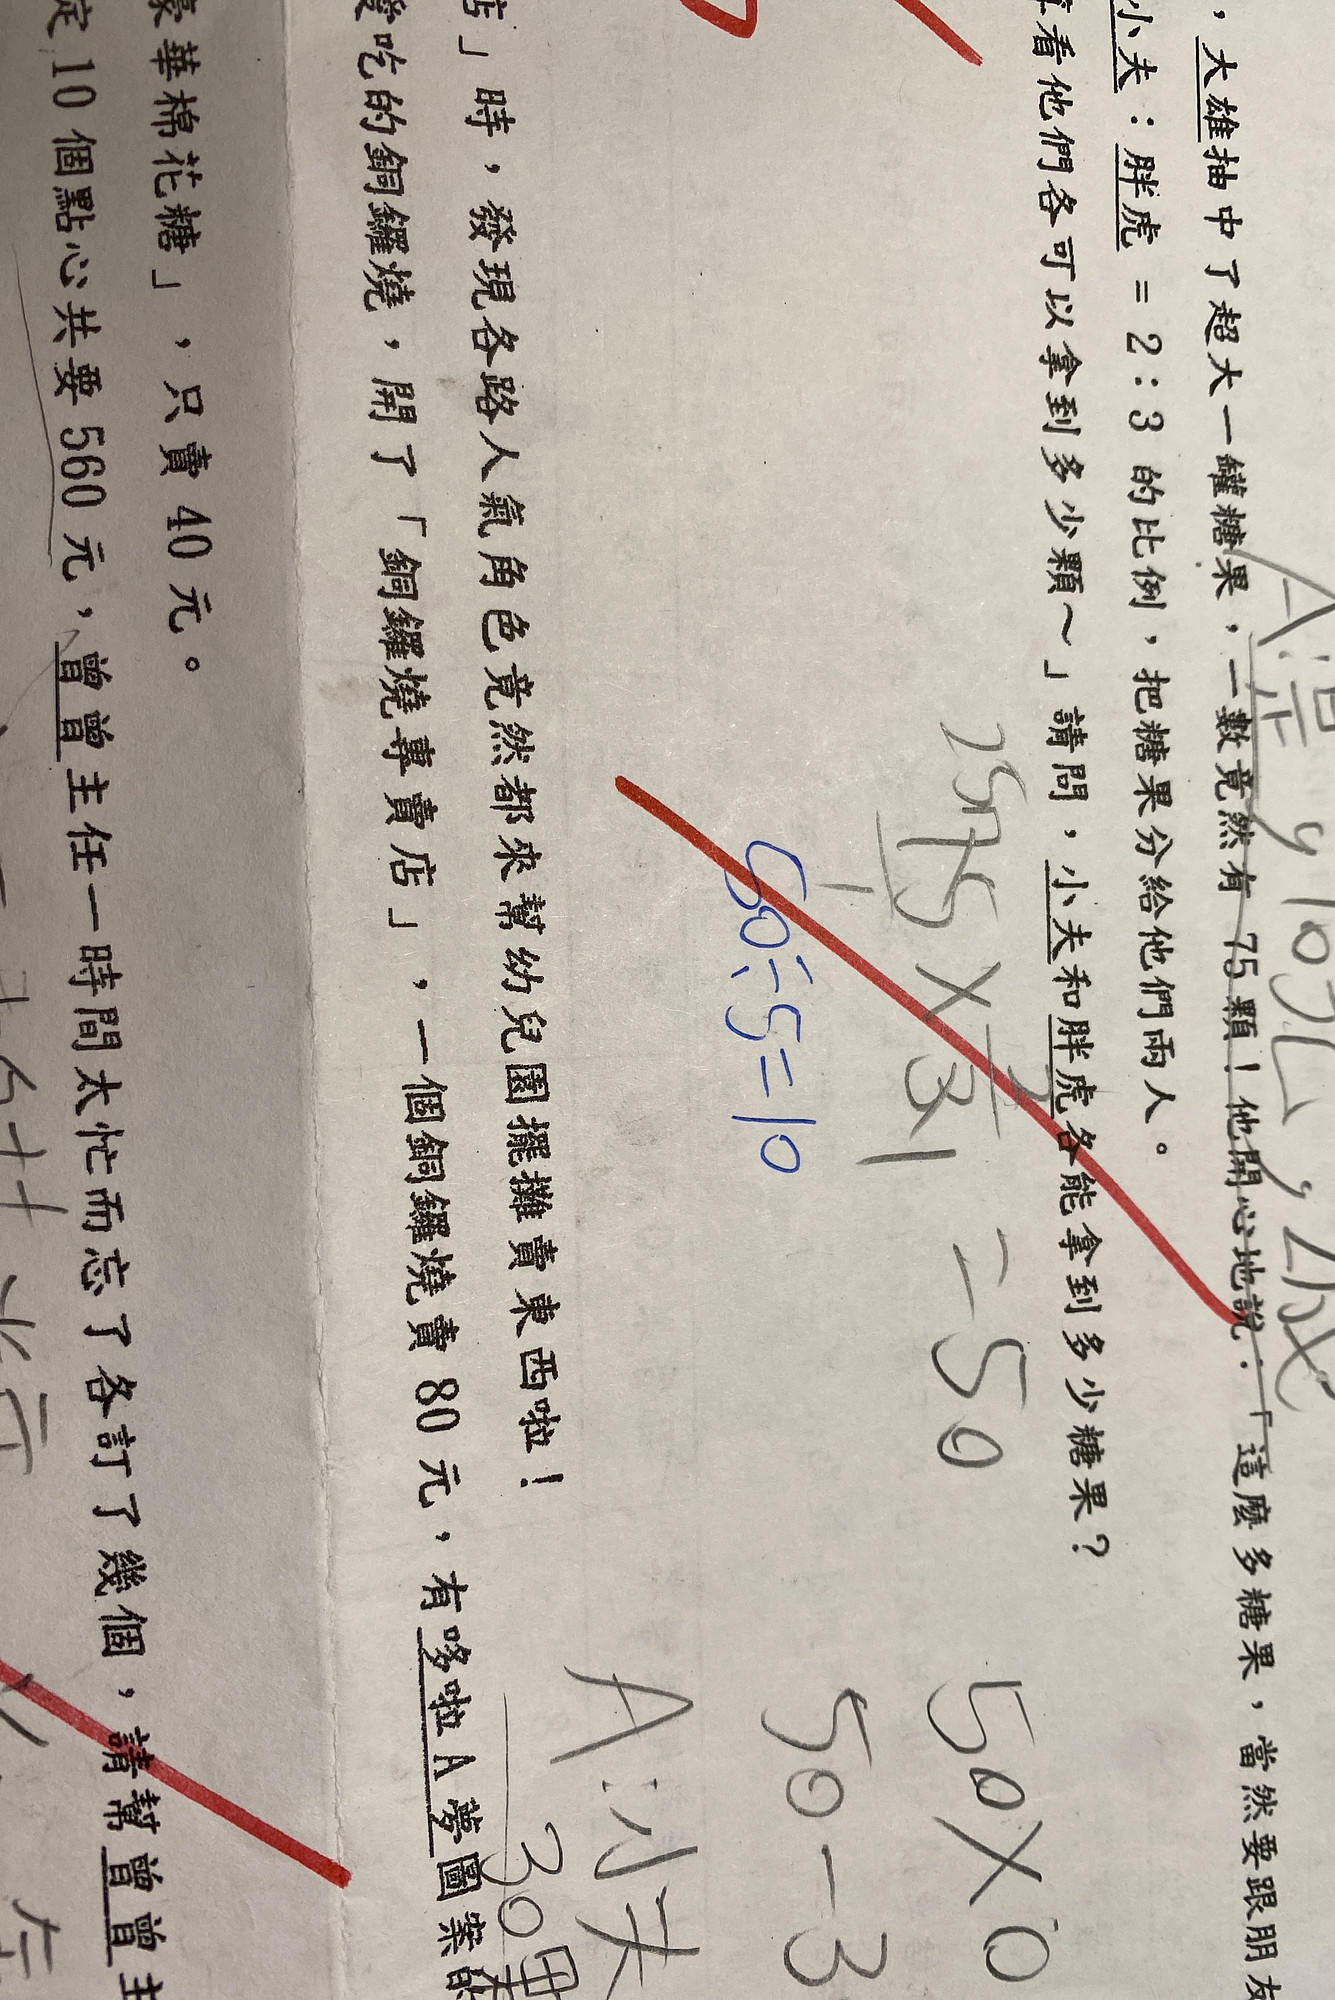 A:是y1071,y2成
，大雄抽中了超大一罐糖果，一數竟然有75顆！他開心地說：「這麼多糖果，當然要跟朋友
小夫：胖虎＝2：3的比例，把糖果分給他們兩人。
看他們各可以拿到多少顆～」請問，小夫和胖虎各能拿到多少糖果？
25
75×2/3=50
1
1
50×0
50÷5=10
50-3
A:小夫
30
店」時，發現各路人氣角色竟然都來幫幼兒園擺攤賣東西啦！
愛吃的銅鑼燒，開了「銅鑼燒專賣店」，一個銅鑼燒賣80元，有哆啦A夢圖案的
豪華棉花糖」，只賣40元。
定10個點心共要560元，曾曾主任一時間太忙而忘了各訂了幾個，請幫曾曾主